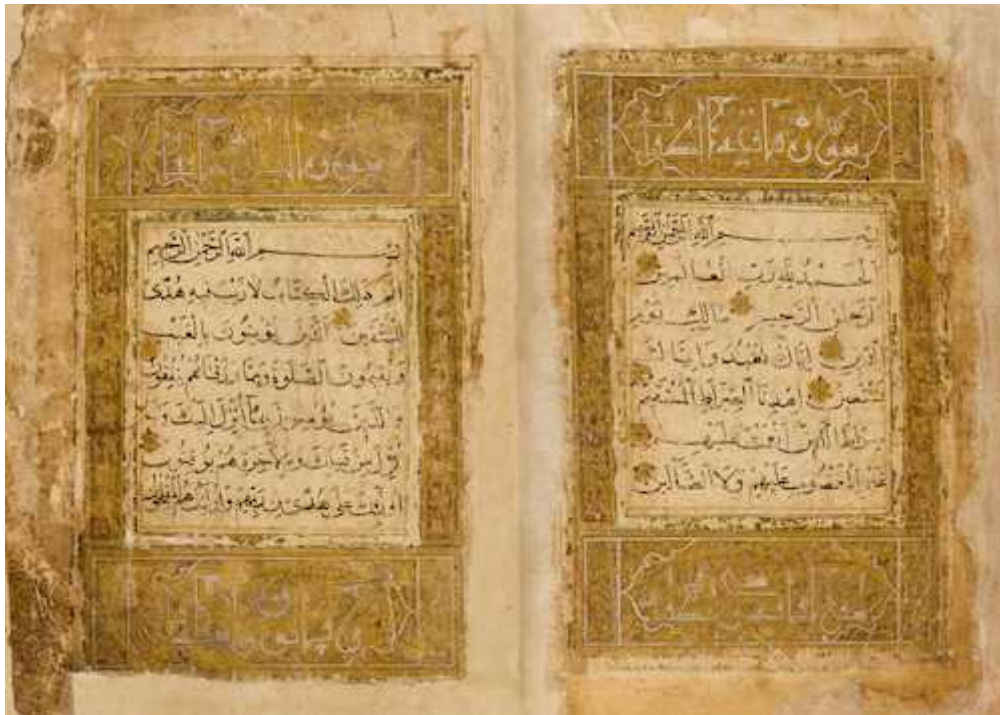 بسم الله الرحمن الرحيم
الحمد لله رب العالمين
الرحمن الرحيم مالك يوم
الدين إياك نعبد وإياك
نستعين اهدنا الصراط المستقيم
صراط الذين أنعمت عليهم
غير المغضوب عليهم ولا الضالين
بسم الله الرحمن الرحيم
الم ذلك الكتاب لا ريب فيه هدى
للمتقين الذين يؤمنون بالغيب
ويقيمون الصلوة ومما رزقناهم ينفقون
والذين يؤمنون بما أنزل إليك وما
أنزل من قبلك وبالآخرة هم يوقنون
أولئك على هدى من ربهم وأولئك هم المفلحون